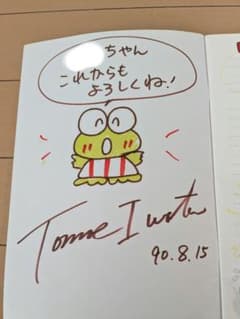 ちゃん
これからも
よろしくね!
90.8.15